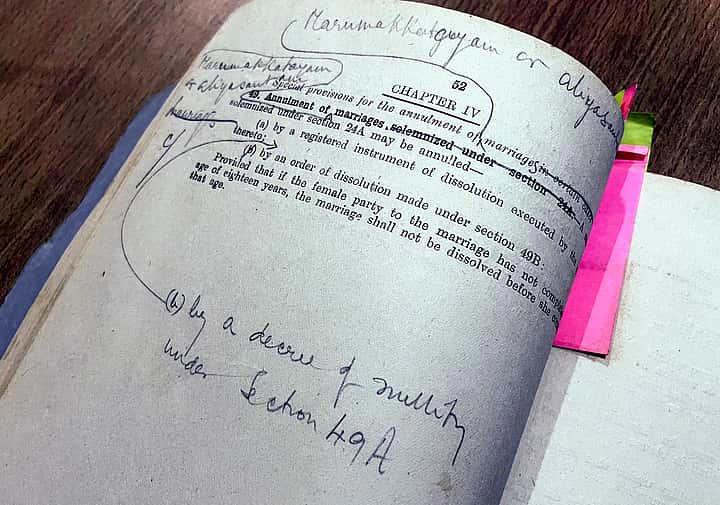 Marumakkatayam or aliyasant
Marumakkatayam
or aliyasantana
52
CHAPTER IV
Special provisions for the annulment of marriages in certain cases
49. Annulment of marriages solemnized under section 24A
marriages
solemnized under section 24A may be annulled—
(a) by a registered instrument of dissolution executed by the
thereto;
c/
(b) by an order of dissolution made under section 49B:
Provided that if the female party to the marriage has not
age of eighteen years, the marriage shall not be dissolved before she
that age.
(b) by a decree of nullity
under Section 49A